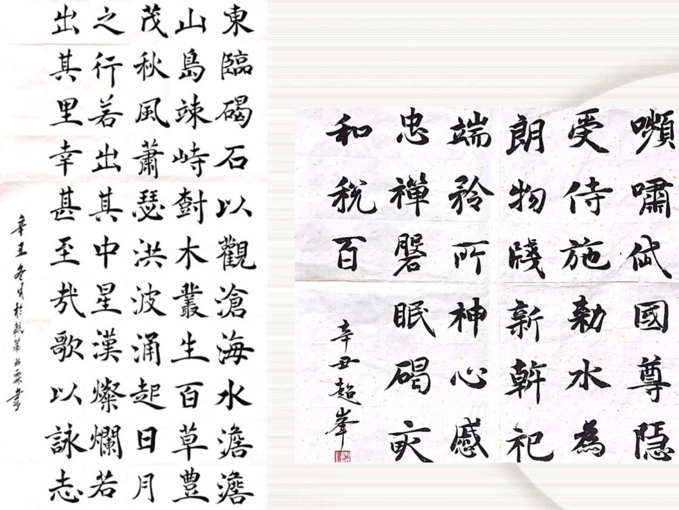 東臨碣石以觀滄海水澹澹
山島竦峙樹木叢生百草豊
茂秋風蕭瑟洪波涌起日月
之行若出其中星漢燦爛若
出其里幸甚至哉歌以詠志
辛丑冬月於書
嚬嘯岱國尊隱
受侍施勑水為
朗物牋新幹祀
端矜所神心慼
忠禪磐眠碣
和稅百
辛丑超峯